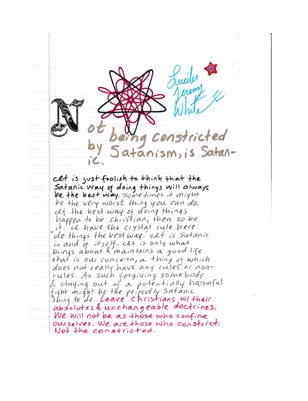 Lucifer
Jeremy
White
Not being constricted
by Satanism, is Satan-
ic.
It is just foolish to think that the
Satanic way of doing things will always
be the best way. Sometimes it might
be the very worst thing you can do.
If the best way of doing things
happens to be Christian, then so be
it. I have the crystal rule here
"do things the best way." It is Satanic
in and of itself. It is only what
brings about & maintains a good life
that is our concern, a thing of which
does not really have any rules or non-
rules. As such forgiving somebody
& staying out of a potentially harmful
fight might be the perfectly Satanic
thing to do. Leave Christians w/ their
absolutes & unchangeable doctrines.
We will not be as those who confine
ourselves. We are those who constrict.
Not the constricted.